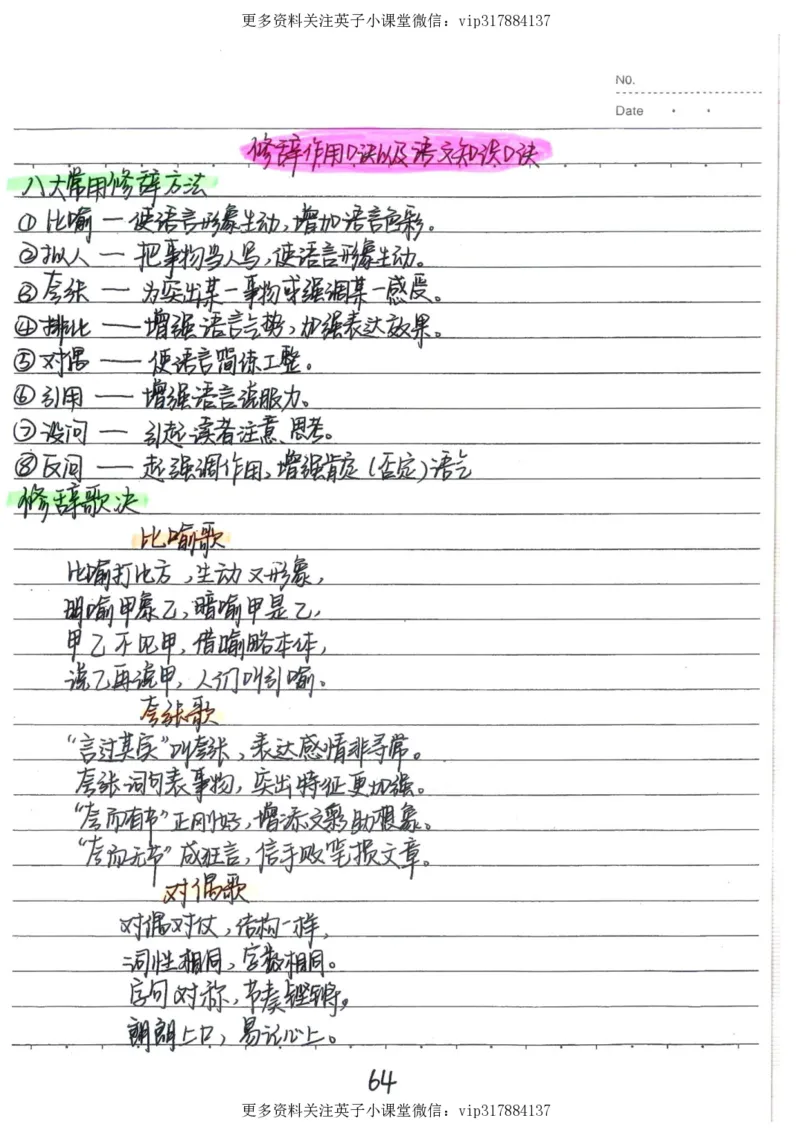 更多资料关注英子小课堂微信：vip317884137
No.
Date
修辞作用口诀以及语文知识口诀
八大常用修辞方法
① 比喻 — 使语言形象生动，增加语言色彩。
② 拟人 — 把事物当人写，使语言形象生动。
③ 夸张 — 为突出某一事物或强调某一感受。
④ 排比 — 增强语言气势，加强表达效果。
⑤ 对偶 — 使语言简练工整。
⑥ 引用 — 增强语言说服力。
⑦ 设问 — 引起读者注意、思考。
⑧ 反问 — 起强调作用，增强肯定（否定）语气
修辞歌决
比喻歌
比喻打比方，生动又形象，
明喻甲象乙，暗喻甲是乙，
甲乙不见甲，借喻略本体，
说乙再说甲，人们叫引喻。
夸张歌
“言过其实”叫夸张，表达感情非寻常。
夸张词句表事物，突出特征更加强。
“夸而有节”正刚好，增添文彩助想象。
“夸而无节”成狂言，信手败笔损文章。
对偶歌
对偶对仗，结构一样，
词性相同，字数相同。
字句对称，节奏铿锵，
朗朗上口，易记心上。
64
更多资料关注英子小课堂微信：vip317884137